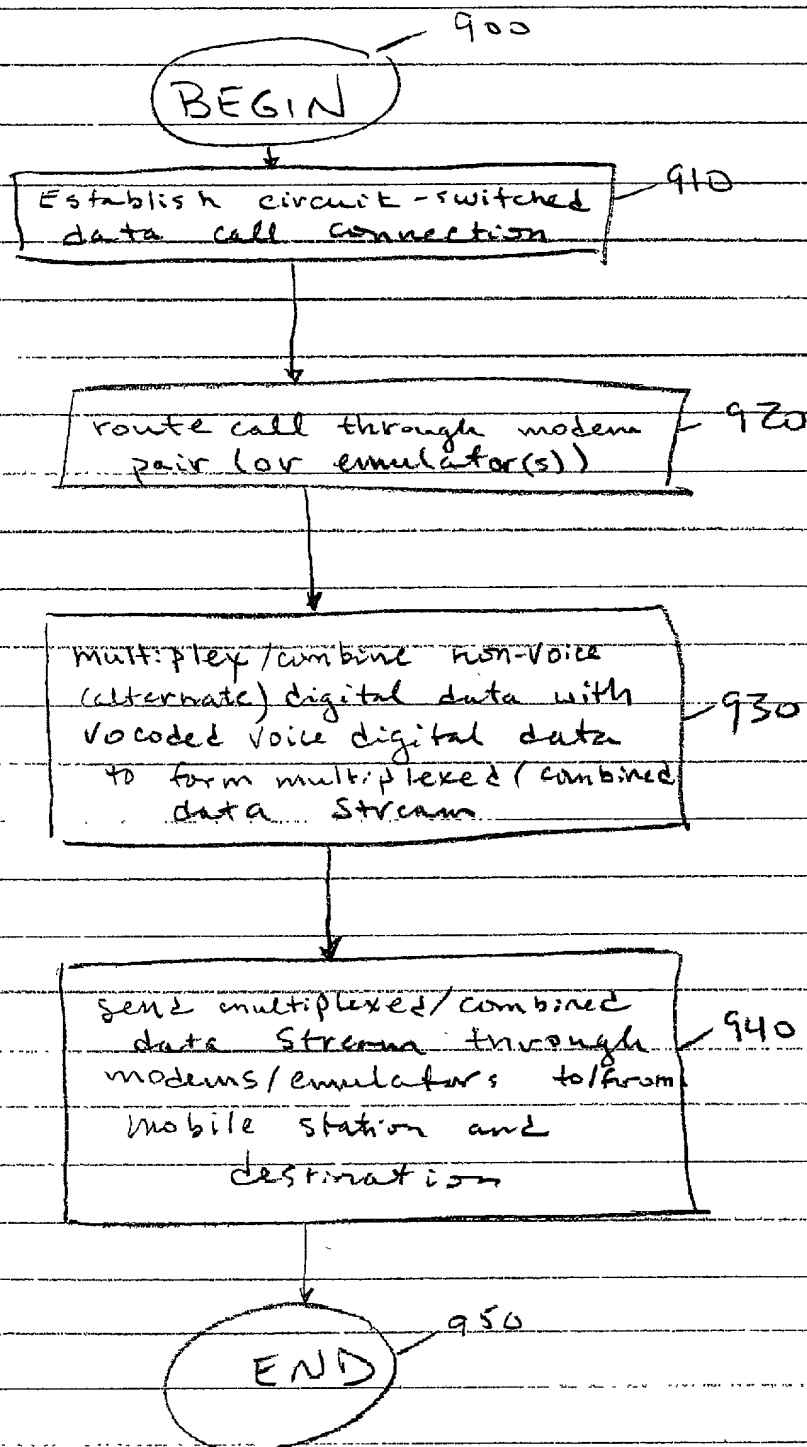 900
BEGIN
Establish circuit-switched 910
data call connection
route call through modem 920
pair (or emulator(s))
multiplex/combine non-voice
(alternate) digital data with 930
vocoded voice digital data
to form multiplexed/combined
data stream
send multiplexed/combined
data stream through 940
modems/emulators to/from
mobile station and
destination
950
END